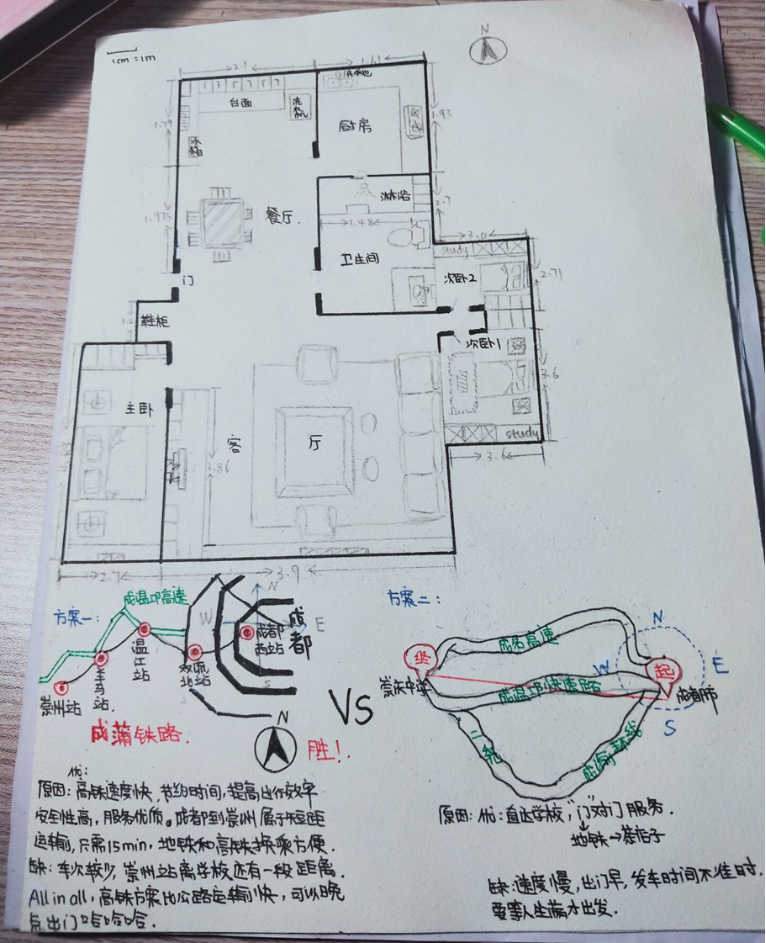 N
1cm=1m
台面
洗衣机
厨房
1.79
1.93
冰箱
2.7
淋浴
1.975
餐厅
1.48
3.0
study
卫生间
2.71
次卧2
门
鞋柜
次卧1
3.6
主卧
客
厅
3.86
study
3.6
2.7
3.9
方案一:
成温邛高速
N
W
E
成都
成都西站
温江站
双流北站
羊马站
崇州站
成蒲铁路
N
胜!
VS
方案二:
成名高速
N
W
E
S
终
起
崇庆中学
成都市
成温邛快速路
二绕
优:
原因:高铁速度快,节约时间,提高出行效率
安全性高,服务优质。成都到崇州属于短距
运输,只需15min,地铁和高铁换乘方便.
缺:车次较少,崇州站离学校还有一段距离.
All in all,高铁方案比公路运输快,可以晚
点出门哈哈哈.
原因:优:直达学校,"门"对门服务.
地铁→茶店子
缺:速度慢,出门早,发车时间不准时.
要等人坐满才出发.